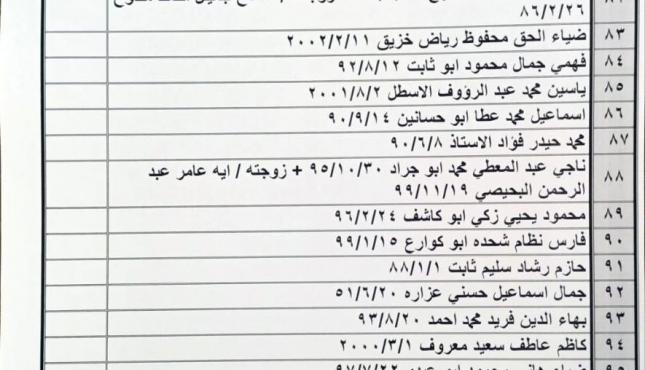 ٨٦/٢/٢٦
٨٣ ضياء الحق محفوظ رياض خزيق ٢٠٠٢/٢/١١
٨٤ فهمي جمال محمود ابو ثابت ٩٢/٨/١٢
٨٥ ياسين محمد عبد الرؤوف الاسطل ٢٠٠١/٨/٢
٨٦ اسماعيل محمد عطا ابو حسانين ٩٠/٩/١٤
٨٧ محمد حيدر فؤاد الاستاذ ٩٠/٦/٨
٨٨ ناجي عبد المعطي محمد ابو جراد ٩٥/١٠/٣٠ + زوجته / ايه عامر عبد
الرحمن البحيصي ٩٩/١١/١٩
٨٩ محمود يحيي زكي ابو كاشف ٩٦/٢/٢٤
٩٠ فارس نظام شحده ابو كوارع ٩٩/١/١٥
٩١ حازم رشاد سليم ثابت ٨٨/١/١
٩٢ جمال اسماعيل حسني عزاره ٥١/٦/٢٠
٩٣ بهاء الدين فريد محمد احمد ٩٣/٨/٢٠
٩٤ كاظم عاطف سعيد معروف ٢٠٠٠/٣/١